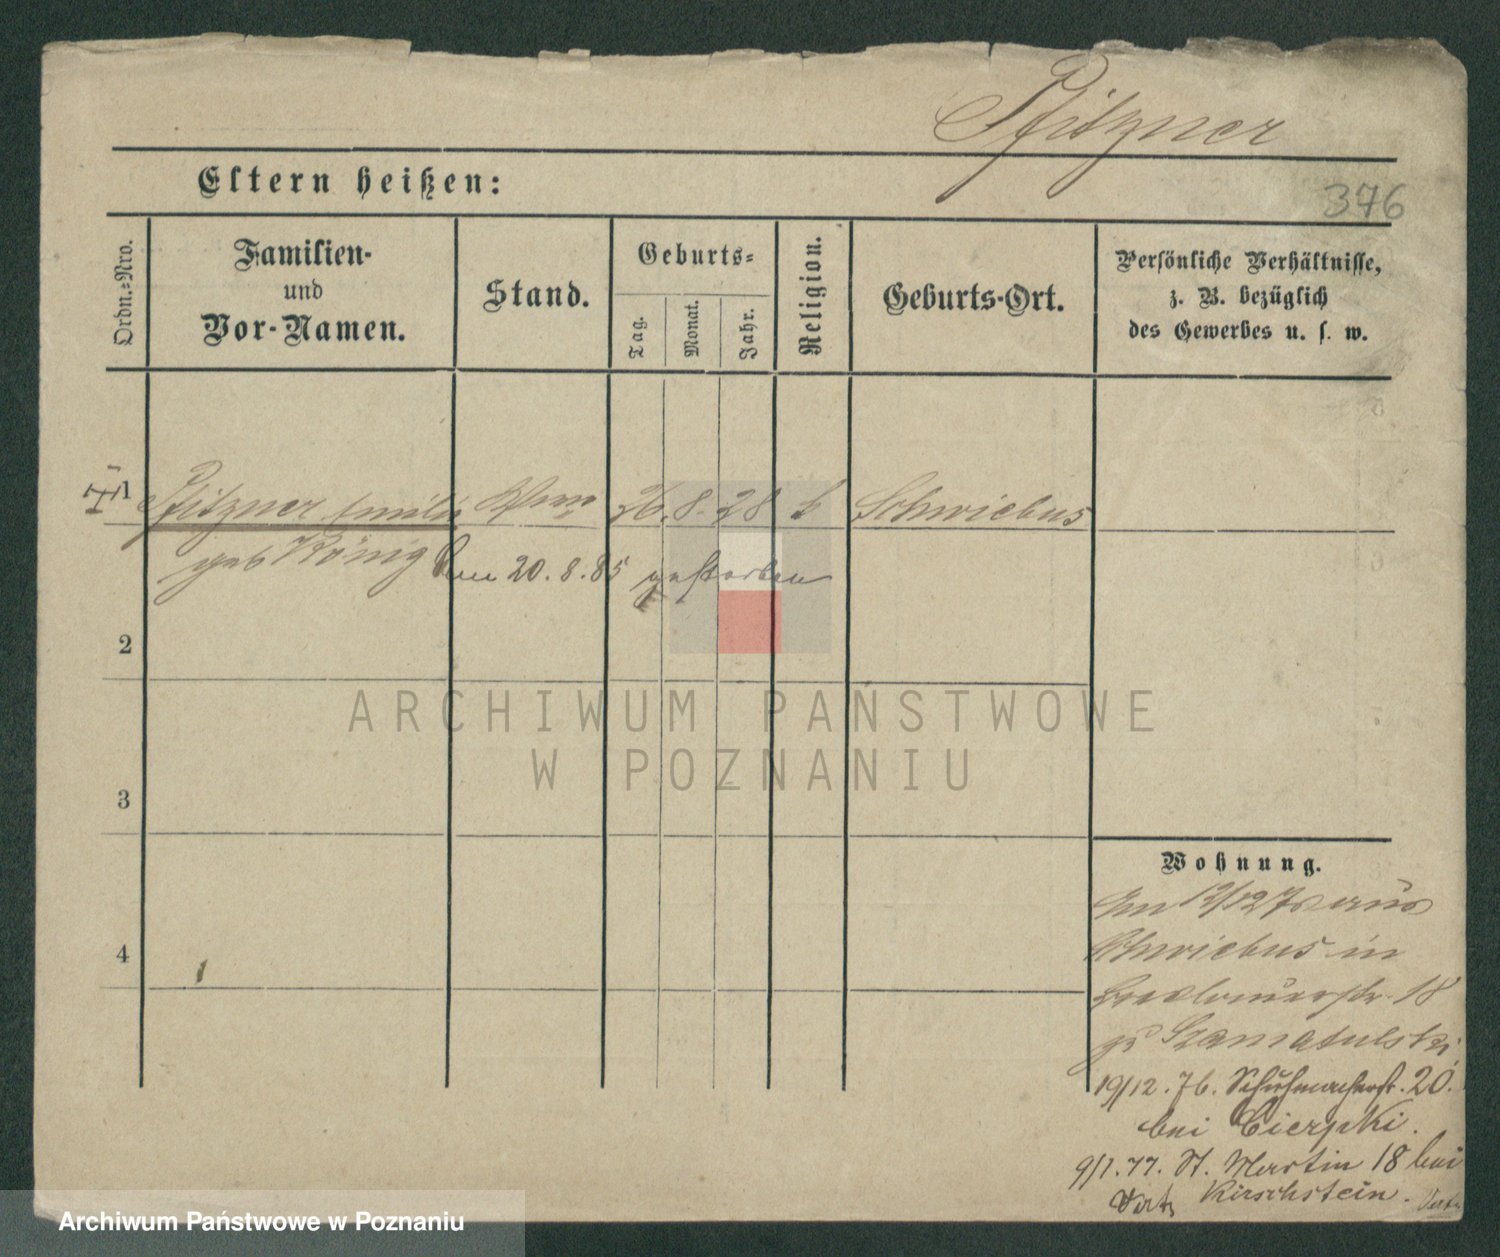 Pfitzner
Eltern heißen:
376
Ordn.=Nro.
Familien-
und
Vor-Namen.
Stand.
Geburts=
Tag.
Monat.
Jahr.
Religion.
Geburts-Ort.
Persönliche Verhältnisse,
z. B. bezüglich
des Gewerbes u. s. w.
1 Pfitzner Emilie 26. 8. 28 Schwiebus
geb König
am 20. 8. 85 gestorben
2
3
4
ARCHIWUM PAŃSTWOWE
W POZNANIU
Wohnung.
Am 12/12 76 aus
Schwiebus in
Breslauerstr. 18
zu Szamatulski
19/12. 76. Schuhmacherstr. 20.
bei Cierpki.
9/1. 77. St. Martin 18 bei
Kirschstein.
Archiwum Państwowe w Poznaniu